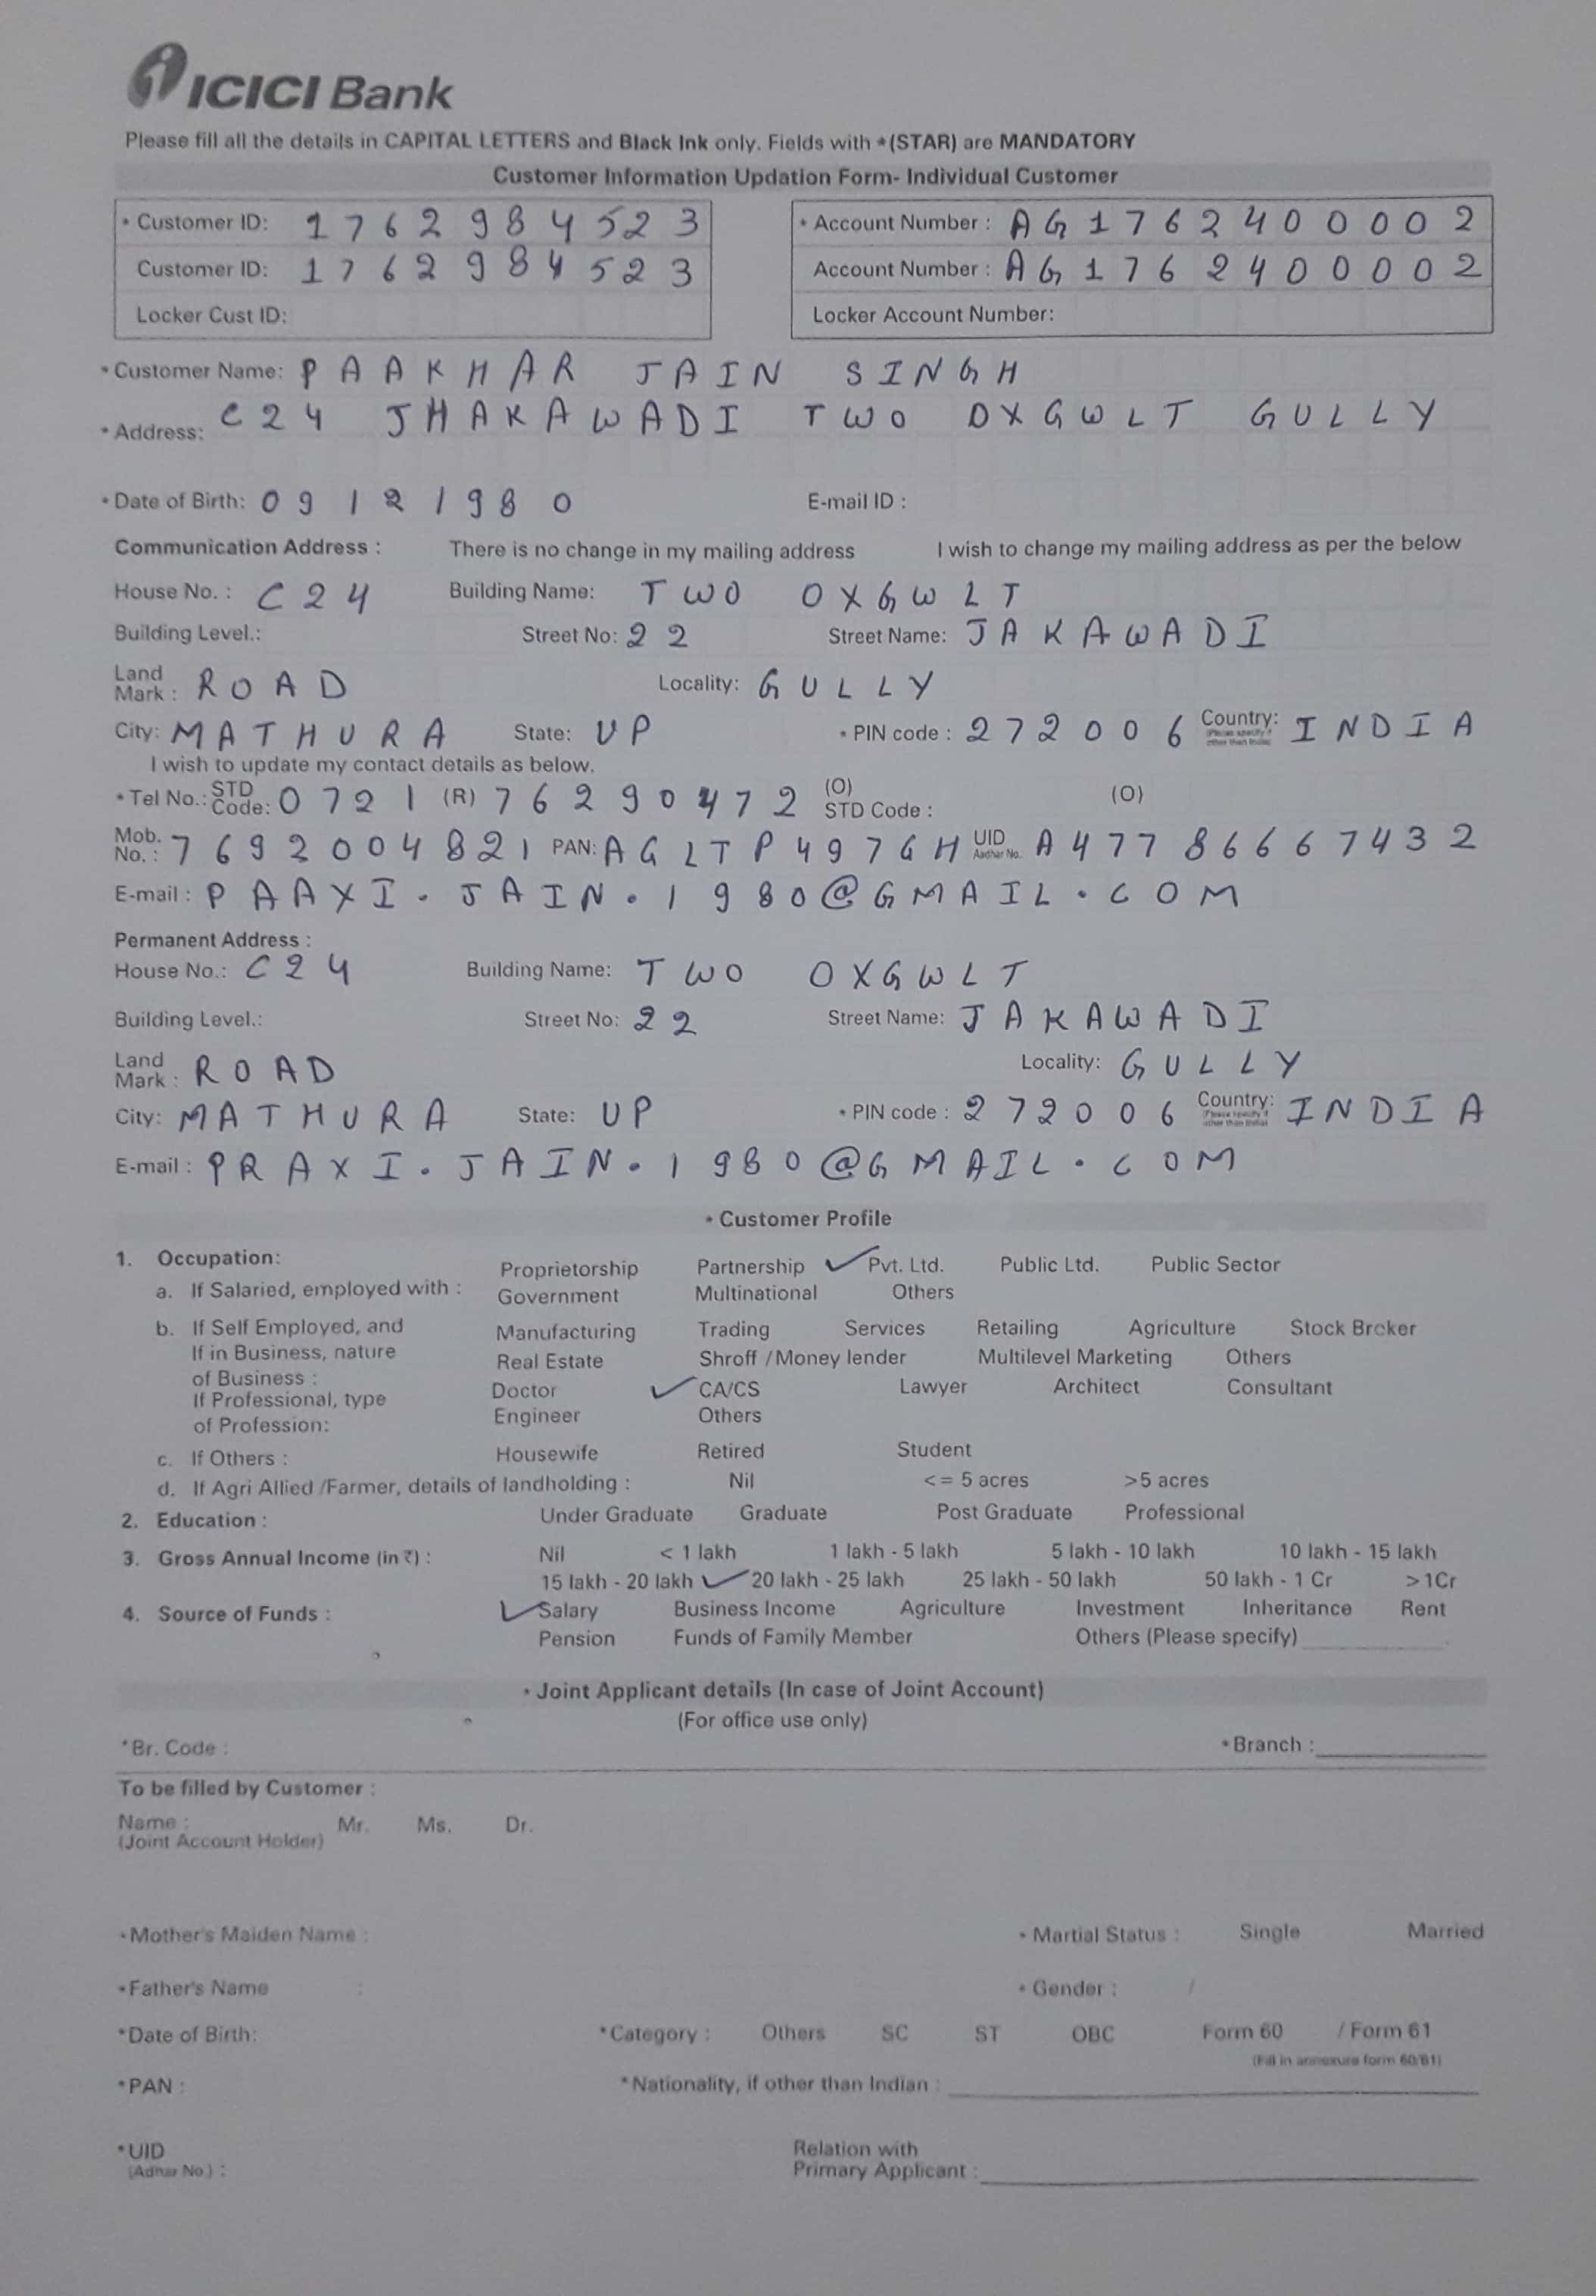 ICICI Bank
Please fill all the details in CAPITAL LETTERS and Black Ink only. Fields with *(STAR) are MANDATORY
Customer Information Updation Form- Individual Customer
* Customer ID: 1762984523 * Account Number : AG17624 00002
Customer ID: 1762984523 Account Number : AG17624 00002
Locker Cust ID: Locker Account Number:
* Customer Name: PAAKHAR JAIN SINGH
* Address: C24 JHAKAWADI TWO OXGWLT GULLY
* Date of Birth: 09121980 E-mail ID :
Communication Address : There is no change in my mailing address I wish to change my mailing address as per the below
House No. : C24 Building Name: TWO OXGWLT
Building Level.: Street No: 22 Street Name: JAKAWADI
Land Mark : ROAD Locality: GULLY
City: MATHURA State: UP * PIN code : 272006 Country: (Please specify if other than India) INDIA
I wish to update my contact details as below.
* Tel No.: STD Code: 0721 (R) 76290472 (O) STD Code : (O)
Mob. No. : 7692004821 PAN: AGLTP497GH UID Aadhar No. A47786667432
E-mail : PAAXI.JAIN.1980@GMAIL.COM
Permanent Address :
House No.: C24 Building Name: TWO OXGWLT
Building Level.: Street No: 22 Street Name: JAKAWADI
Land Mark : ROAD Locality: GULLY
City: MATHURA State: UP * PIN code : 272006 Country: (Please specify if other than India) INDIA
E-mail : PRAXI.JAIN.1980@GMAIL.COM
* Customer Profile
1. Occupation:
a. If Salaried, employed with : Proprietorship Partnership ✓ Pvt. Ltd. Public Ltd. Public Sector
Government Multinational Others
b. If Self Employed, and Manufacturing Trading Services Retailing Agriculture Stock Broker
If in Business, nature Real Estate Shroff /Money lender Multilevel Marketing Others
of Business :
If Professional, type Doctor ✓ CA/CS Lawyer Architect Consultant
of Profession: Engineer Others
c. If Others : Housewife Retired Student
d. If Agri Allied /Farmer, details of landholding : Nil <= 5 acres >5 acres
2. Education : Under Graduate Graduate Post Graduate Professional
3. Gross Annual Income (in ₹) : Nil < 1 lakh 1 lakh - 5 lakh 5 lakh - 10 lakh 10 lakh - 15 lakh
15 lakh - 20 lakh ✓ 20 lakh - 25 lakh 25 lakh - 50 lakh 50 lakh - 1 Cr >1Cr
4. Source of Funds : ✓ Salary Business Income Agriculture Investment Inheritance Rent
Pension Funds of Family Member Others (Please specify)
* Joint Applicant details (In case of Joint Account)
(For office use only)
*Br. Code : * Branch :
To be filled by Customer :
Name : Mr. Ms. Dr.
(Joint Account Holder)
* Mother's Maiden Name : * Martial Status : Single Married
* Father's Name : * Gender : /
*Date of Birth: *Category : Others SC ST OBC Form 60 / Form 61
(Fill in annexure form 60/61)
*PAN : *Nationality, if other than Indian :
*UID
(Adhar No.) :
Relation with
Primary Applicant :